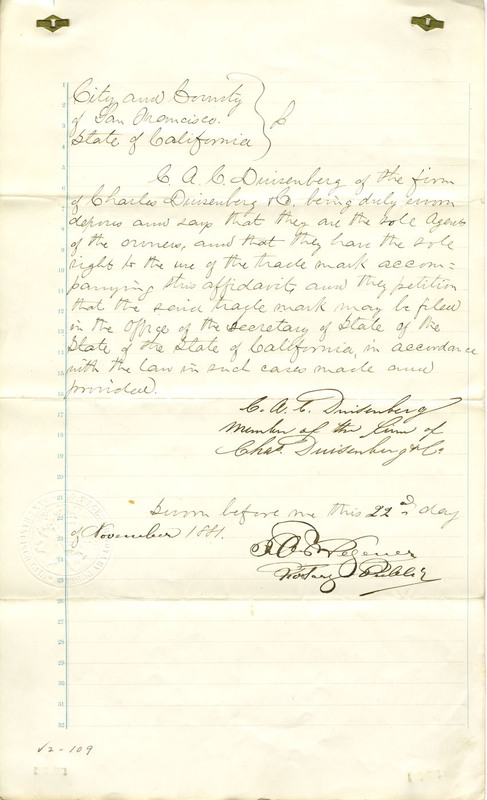 City and County
of San Francisco.
State of California
C. A. C. Duisenberg of the firm
of Charles Duisenberg & Co. being duly sworn
deposes and says that they are the sole Agents
of the owners, and that they have the sole
right to the use of the trade mark accom=
panying this affidavit, and they petition
that the said trade mark may be filed
in the Office of the Secretary of State of the
State of the State of California, in accordance
with the law in such cases made and
provided.
C. A. C. Duisenberg
Member of the Firm of
Chas. Duisenberg & Co.
Sworn before me this 22nd day
of November 1881.
Wegener
Notary Public
1
2
3
4
5
6
7
8
9
10
11
12
13
14
15
16
17
18
19
20
21
22
23
24
25
26
27
28
29
30
31
32
V2-109